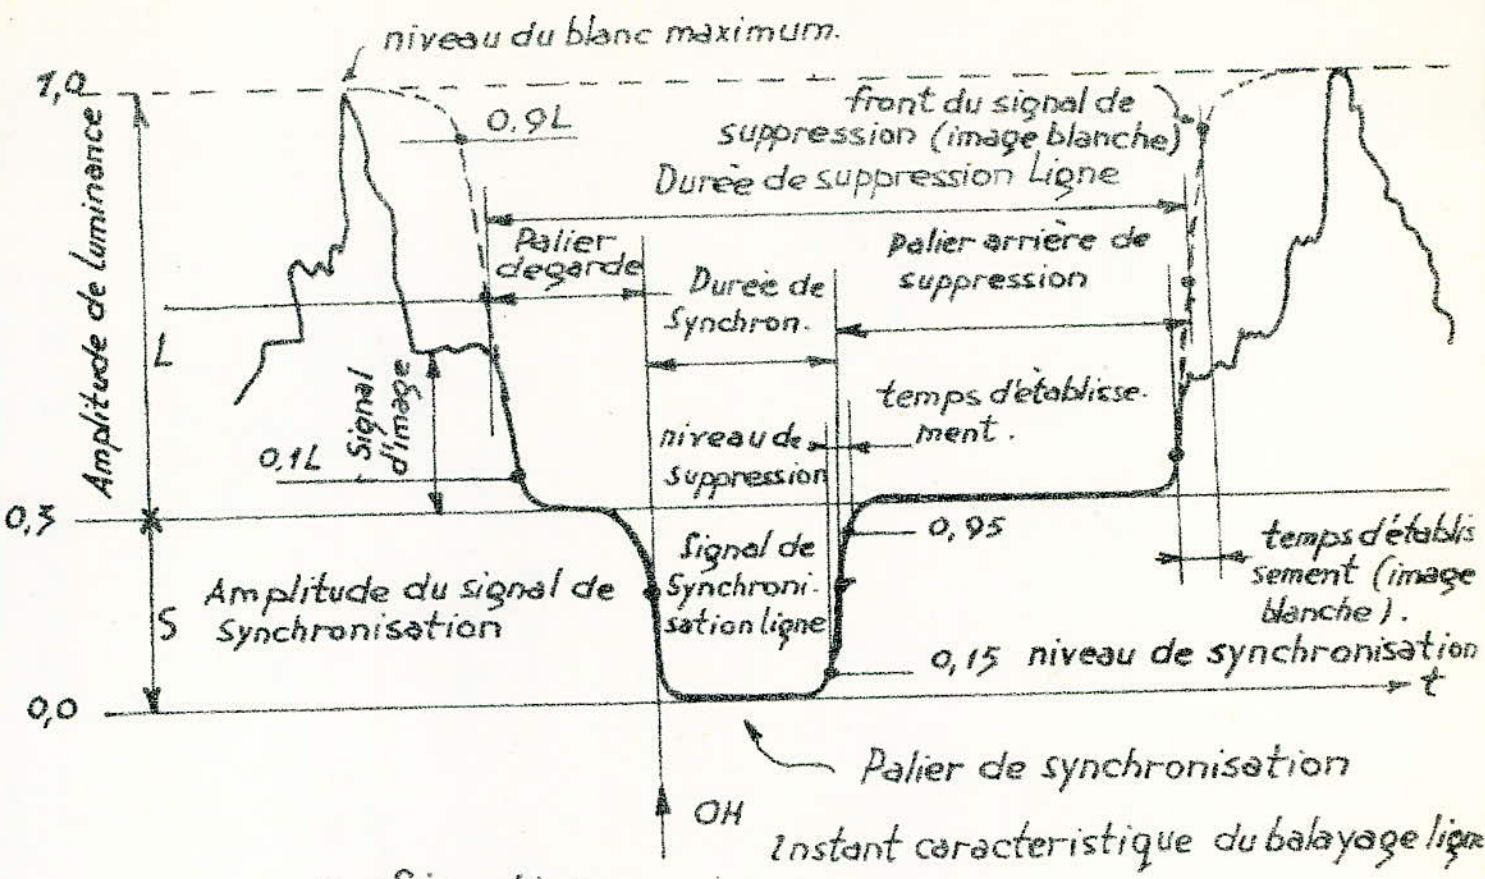 niveau du blanc maximum.
1,0
front du signal de
suppression (image blanche)
0,9L
Durée de suppression Ligne
Amplitude de luminance
Palier
de garde
palier arrière de
suppression
Durée de
Synchron.
L
Signal
d'image
temps d'établisse-
ment.
niveau de
suppression
0,1L
0,3
0,95
Signal de
Synchroni-
sation ligne
temps d'établis
sement (image
blanche).
Amplitude du signal de
Synchronisation
S
0,15 niveau de synchronisation
t
0,0
Palier de synchronisation
OH
Instant caracteristique du balayage ligne